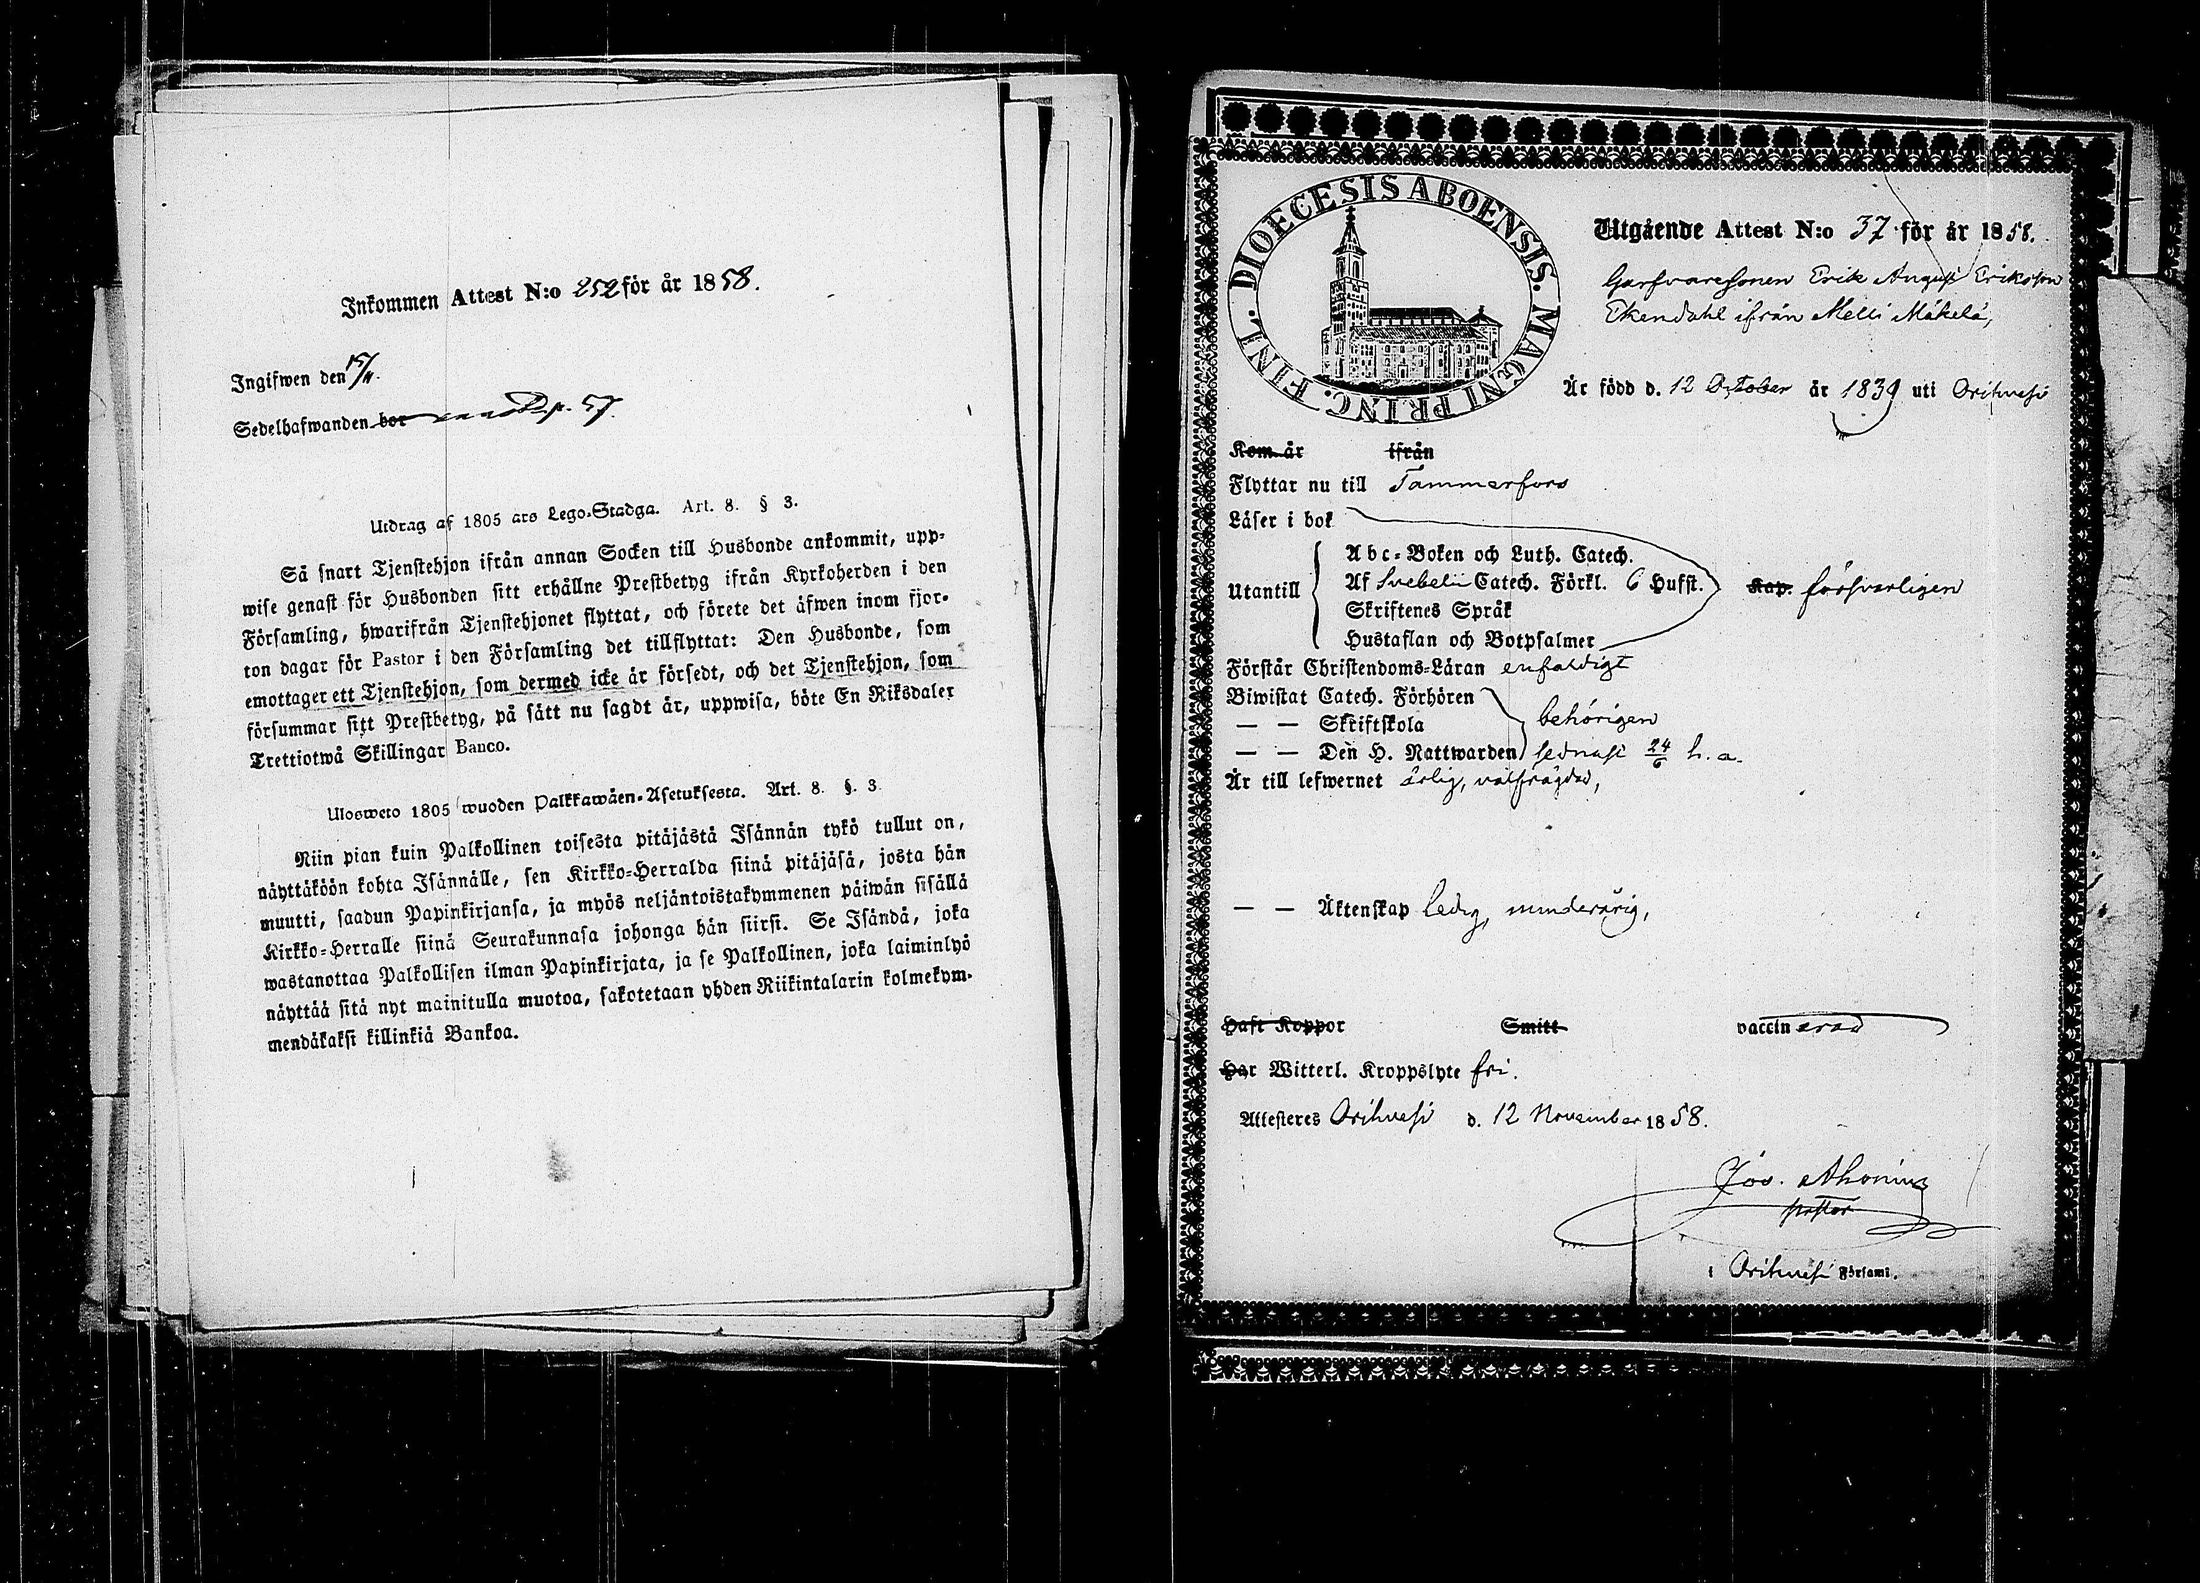 Inkommen Attest N:o 252 för år 1858.
Ingifwen den 15/11.
Sedelhafwanden bor p. 57.
Utdrag af 1805 års Lego-Stadga. Art. 8. § 3.
Så snart Tjenstehjon ifrån annan Socken till Husbonde ankommit, upp-
wise genast för Husbonden sitt erhållne Prestbetyg ifrån Kyrkoherden i den
Församling, hwarifrån Tjenstehjonet flyttat, och förete det äfwen inom fjor-
ton dagar för Pastor i den Församling det tillflyttat: Den Husbonde, som
emottager ett Tjenstehjon, som dermed icke är försedt, och det Tjenstehjon, som
försummar sitt Prestbetyg, på sätt nu sagdt är, uppwisa, böte En Riksdaler
Trettiotwå Skillingar Banco.
Ulosweto 1805 wuoden Palkkawäen-Asetuksesta. Art. 8. §. 3.
Niin pian kuin Palkollinen toisesta pitäjästä Isännän tykö tullut on,
näyttäköön kohta Isännälle, sen Kirkko-Herralda siinä pitäjäsä, josta hän
muutti, saadun Papinkirjansa, ja myös neljäntoistakymmenen päiwän sisällä
Kirkko-Herralle siinä Seurakunnasa johonga hän siirsi. Se Isändä, joka
wastanottaa Palkollisen ilman Papinkirjata, ja se Palkollinen, joka laiminlyö
näyttää sitä nyt mainitulla muotoa, sakotetaan yhden Riikintalarin kolmekym-
mendäkaksi killinkiä Bankoa.
DIOECESIS ABOENSIS. MAGNI PRINC. FINL.
Utgående Attest N:o 37 för år 1858.
Garfvaresonen Erik August Eriksson
Ekendahl ifrån Melli Mäkelä,
Är född d. 12 October år 1839 uti Orihvesi
Kom år ifrån
Flyttar nu till Tammerfors
Läser i bok
Abc-Boken och Luth. Catech.
Utantill Af Svebelii Catech. Förkl. 6 Hufst. Kap. försvarligen
Skriftenes Språk
Hustaflan och Botpsalmer
Förstår Christendoms-Läran enfaldigt
Biwistat Catech. Förhören
— — Skriftskola behörigen
— — Den H. Nattwarden sednast 24/6 h. a.
Är till lefwernet ärlig, välfrägdad,
— — Äktenskap ledig, minderårig,
Haft Koppor Smitt vaccinerad
Har Witterl. Kroppslyte fri.
Attesteres Orihvesi d. 12 November 1858.
Jos. Ahonius
pastor
i Orihvesi Församl.